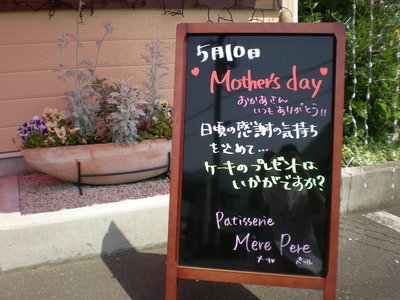 5月10日
♥ Mother's day ♥
おかあさん
いつもありがとう!!
日頃の感謝の気持ち
を込めて…
ケーキのプレゼントは
いかがですか?
Patisserie
Mere Pere
メール ペール